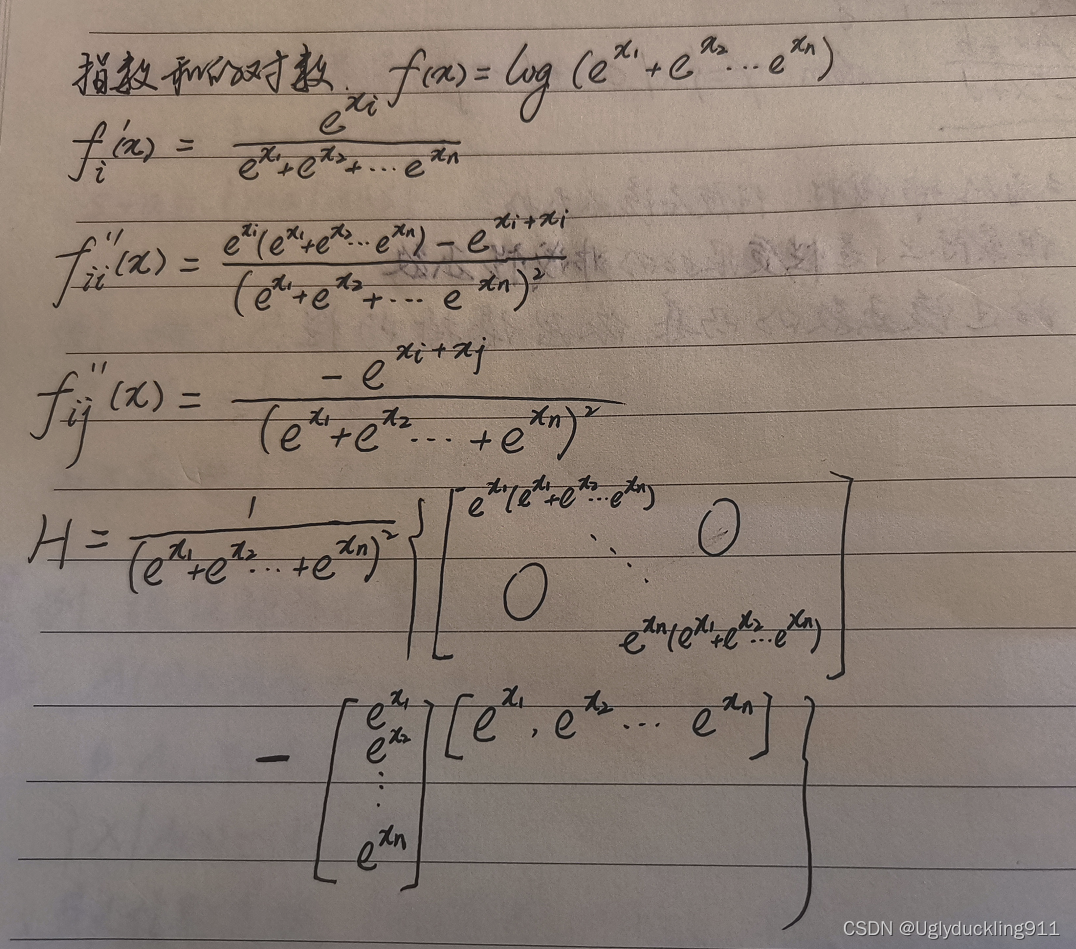 指数和的对数. f(x) = log (e^{x_1} + e^{x_2} ... e^{x_n})
f_i'(x) = \frac{e^{x_i}}{e^{x_1} + e^{x_2} + ... e^{x_n}}
f_{ii}''(x) = \frac{e^{x_i}(e^{x_1} + e^{x_2} ... e^{x_n}) - e^{x_i + x_i}}{(e^{x_1} + e^{x_2} + ... e^{x_n})^2}
f_{ij}''(x) = \frac{-e^{x_i + x_j}}{(e^{x_1} + e^{x_2} ... + e^{x_n})^2}
H = \frac{1}{(e^{x_1} + e^{x_2} ... + e^{x_n})^2} \{ \begin{bmatrix} e^{x_1}(e^{x_1} + e^{x_2} ... e^{x_n}) & & 0 \\ & \ddots & \\ 0 & & e^{x_n}(e^{x_1} + e^{x_2} ... e^{x_n}) \end{bmatrix}
- \begin{bmatrix} e^{x_1} \\ e^{x_2} \\ \vdots \\ e^{x_n} \end{bmatrix} [e^{x_1}, e^{x_2} ... e^{x_n}] \}
CSDN @Uglyduckling911